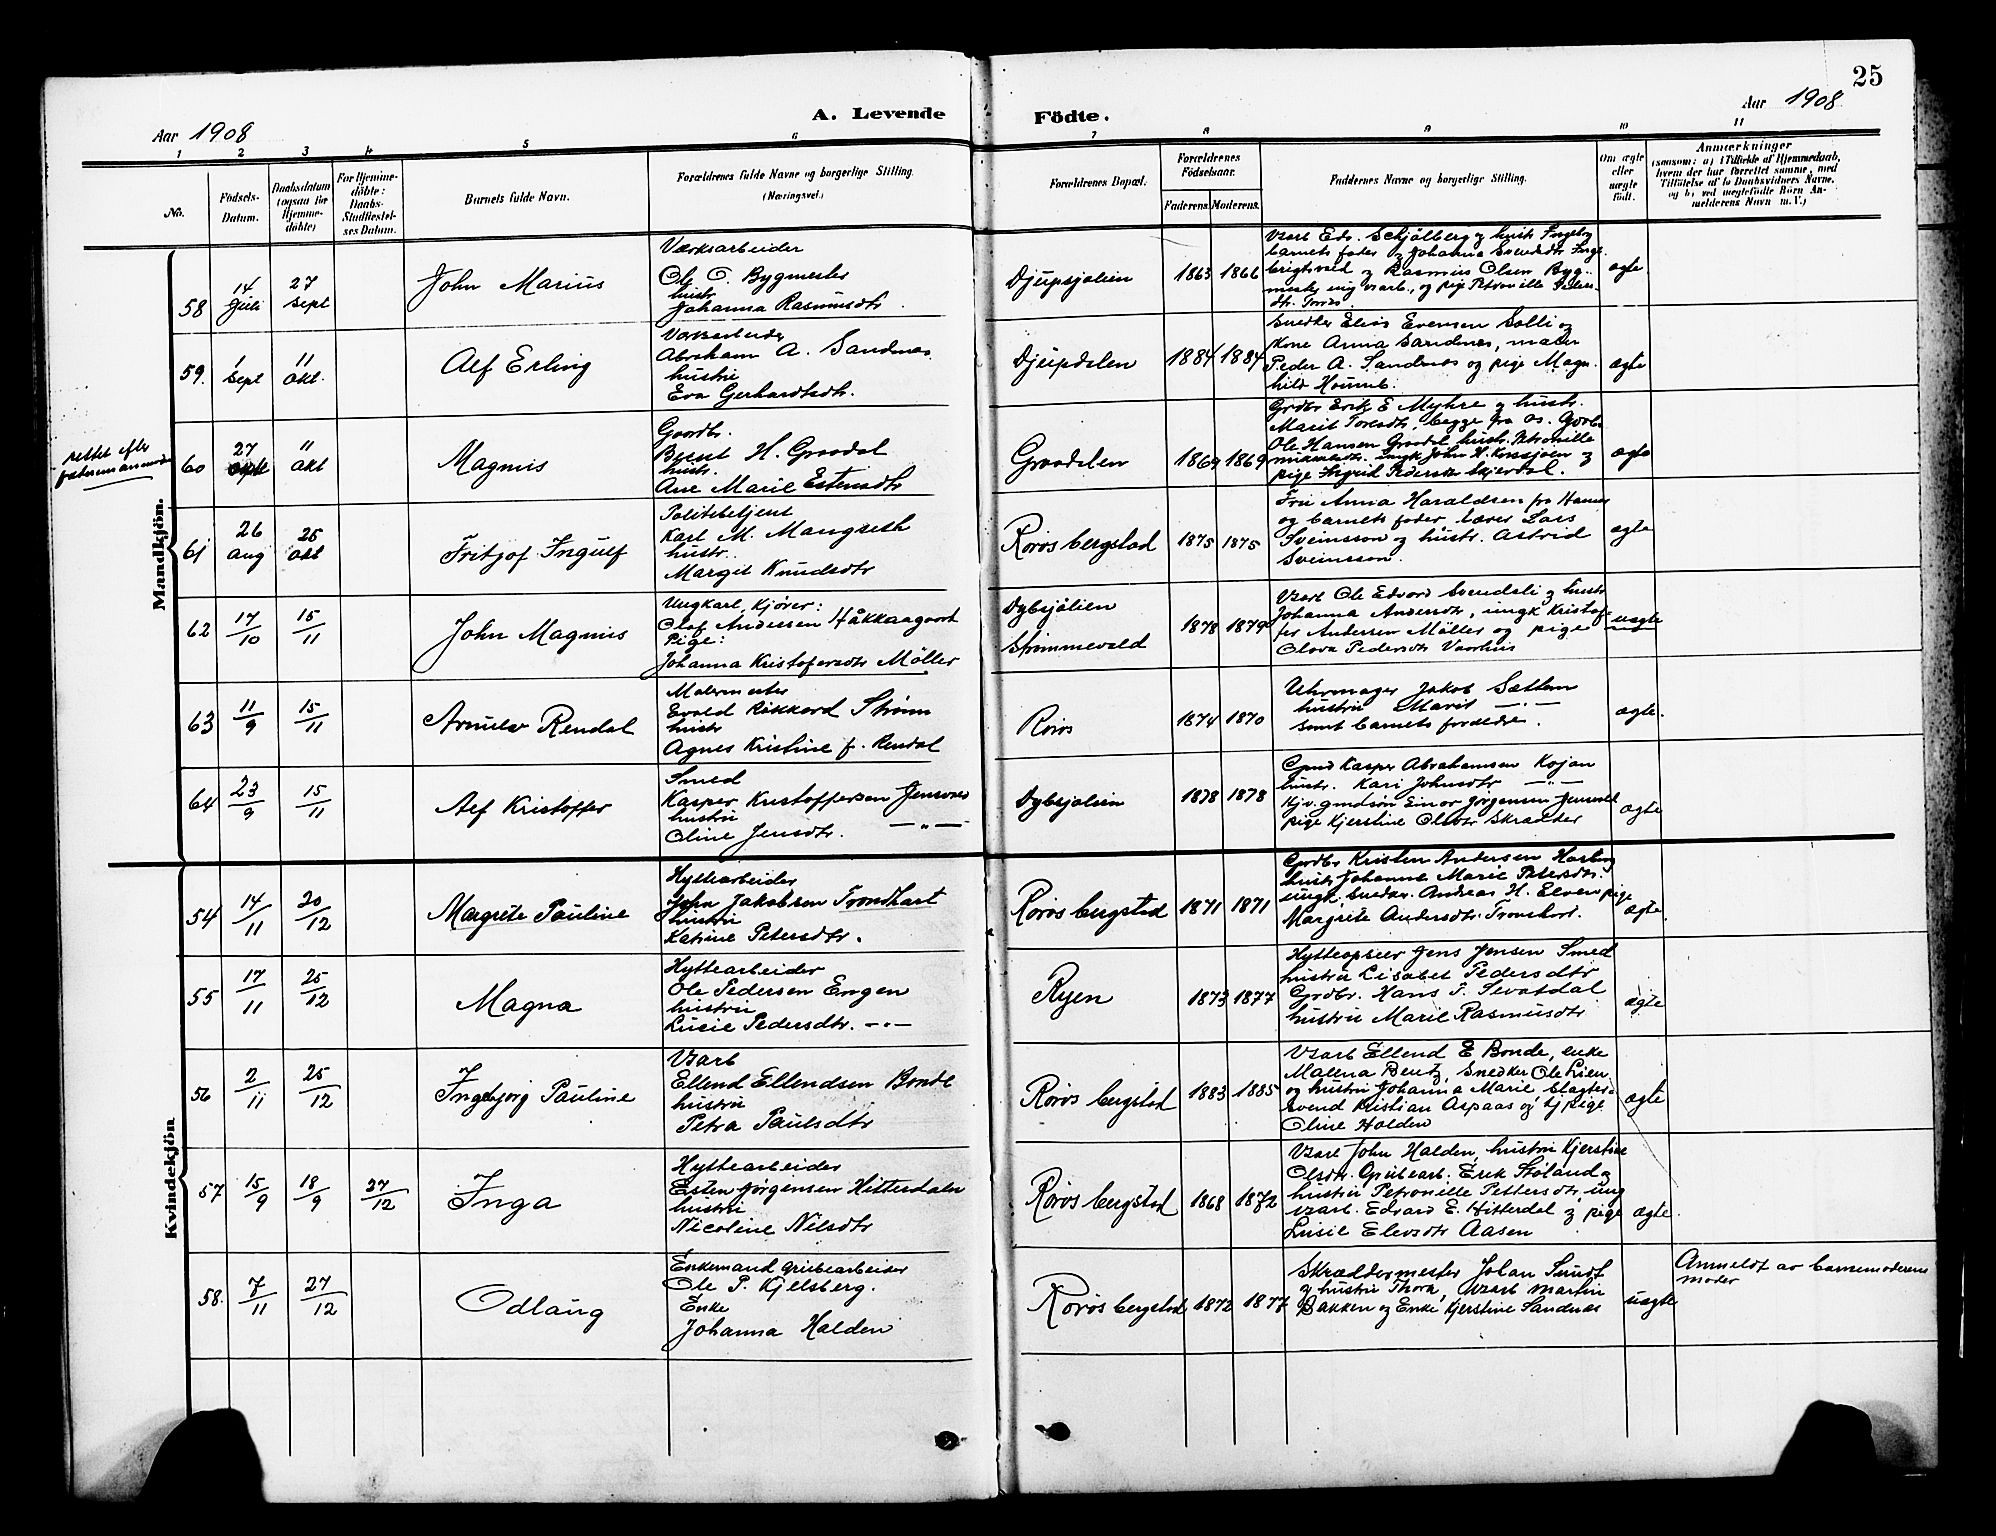 25
Aar 1908
A. Levende
Födte.
Aar 1908
1 2 3 4 5 6 7 8 9 10 11
No.
Födsels-
Datum.
Daabsdatum
(ogsaa for
Hjemme-
döbte)
For Hjemme-
döbte:
Daabs-
Stadfæstel-
ses Datum.
Barnets fulde Navn.
Forældrenes fulde Navne og borgerlige Stilling.
(Næringsvei.)
Forældrenes Bopæl.
Forældrenes
Födselsaar.
Faderens. Moderens.
Faddernes Navne og borgerlige Stilling.
Om ægte
eller
uægte
født.
Anmærkninger
(saasom: a) i Tilfælde af Hjemmedaab,
hvem der har forrettet samme, med
Tilföielse af to Daabsvidners Navne,
og b) ved uægtefödte Börn An-
melderens Navn m. V.)
Mandkjön.
58
14
Juli
27
Sept
John Marius
Værksarbeider
Ole O. Bygmester
hustr
Johanna Rasmusdtr.
Djupsjølien
1863 1866
Vzarb Edv. Schjølberg og hustr Ingeborg
barnets fader og Johanna
og Rasmus Olsen Byg-
mester ung vzarb., og pige Petronille
ægte
59.
1
Sept
11
Okt.
Alf Erling
Værksarbeider
Abraham A. Sandnes
hustru
Eva Gerhardtsdtr.
Djupdalen
1884 1884
Snedker Elias Evensen Solli og
Kone Anna Sandnes, maler
Peder A. Sandnes og pige Magn-
hild
ægte
rettet efter
60
27
Sept
11
Okt
Magnus
Gaardbr.
Bernt H. Graadal
hustr.
Ane Marie Estensdtr
Graadalen
1869 1869
Grdbr Erik E Myhre og hustr.
Marit, begge fra Os. Gårdbr
Ole Hansen Graadal hustr. Petronille
ungk John H. Korssjøen og
pige Ingrid Pedersdtr Skjerdal.
ægte
61
26
Aug
25
Okt
Fritjof Ingulf
Politibetjent
Karl M. Mangseth
hustr.
Margit Knudsdtr
Røros bergstad
1875 1875
Fru Anna Haraldsen fra Hamar
og barnets fader, lærer Lars
Sveinsson og hustr. Astrid
Sveinsson.
ægte
62
17/10
15/11
John Magnus
Ungkarl, Kjører:
Olaf Andersen Håkkaagaard
Pige:
Johanna Kristofersdtr Møller
Dybsjølien
Strømmevold
1878 1879
Vzarb Ole Edvard Svendsli og hustr
Johanna Andersdtr, ungk Kristof-
fer Andersen Møller og pige
Olova Pedersdtr Vaarhus
uægte
63
11/9
15/11
Arnulv Rendal
Malermester
Evald Rikkard Strøm
hustr
Agnes Kristine f. Rendal
Røros
1874 1870
Uhrmager Jakob Sættem
hustru Marit — " —
samt barnets forældre.
ægte.
64
23/9
15/11
Alf Kristoffer
Smed
Kasper Kristoffersen Jensvold
hustru
Oline Jensdtr. — " —
Dybsjølien
1878 1878
Gmd Kasper Abrahamsen Kojan
hustr. Kari Johnsdtr — " —
Kjv. gmdsøn Einar Jørgensen Jensvold
pige Kjerstine Olsdtr Skrædder
ægte
Kvindekjön
54
14/11
20/12
Margrete Pauline
Hyttearbeider
John Jakobsen Trondhart
hustru
Katrine Petersdtr.
Røros bergstad
1871 1871
Grdbr Kristen Andersen Harborg
hustr Johanne Marie Petersdtr.
ungk. snedker Andreas H. Elven pige
Margrete Andersdtr. Tronshart.
ægte
55
17/11
25/12
Magna
Hyttearbeider
Ole Pedersen Engen
hustru
Lusie Pedersdtr. — " —
Ryen
1873 1877
Hytteopseer Jens Jensen Smed
hustru Lisabet Pedersdtr
Grdbr. Hans P. Sevatdal
hustru Marie Rasmusdtr
ægte
56
2/11
25/12
Ingebjørg Pauline
Vzarb
Ellend Ellendsen Bonde
hustru
Petra Paulsdtr
Røros bergstad
1883 1885
Vzarb Ellend E Bonde, enke
Malena Bentz, Snedker Ole Lien
og hustru Johanna Marie, Slagter-
svend Kristian Aspaas og tj pige
Oline Holden
ægte
57
15/9
18/9
27/12
Inga
Hyttearbeider
Esten Jørgensen Hitterdalen
hustru
Nicoline Nilsdtr
Røros bergstad
1868 1872
Vzarb John Halden, hustru Kjerstine
Olsdtr. Grubearb. Erik Støland og
hustru Petronelle Pettersdtr, ung
vzarb. Edvard E. Hitterdal og pige
Lusie Elevsdtr Aasen
ægte
58.
7/11
27/12
Odlaug
Enkemand grubearbeider
Ole P. Kjelsberg.
Enke
Johanna Halden
Røros bergstad
1872 1877
Skræddermester Johan Sundt
og hustru Thora, Vzarb Martin
Bakken og Enke Kjerstine Sandnæs
uægte
Anmeldt av barnemoderens
moder